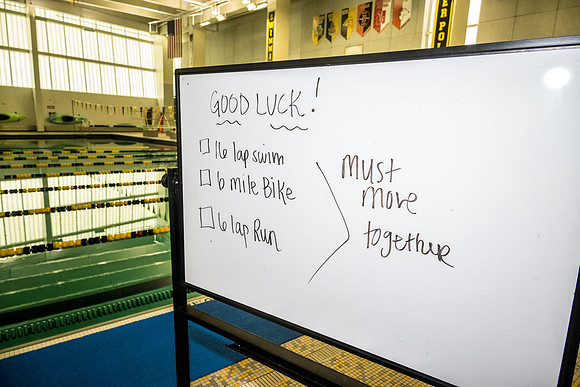 GOOD LUCK!
16 lap swim
6 mile Bike
6 lap Run
must
move
together
ER POL